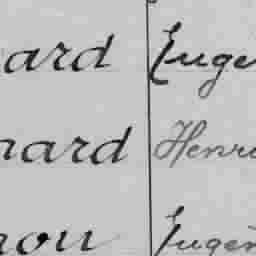 ard Euge
nard Henri
rou Eugèn